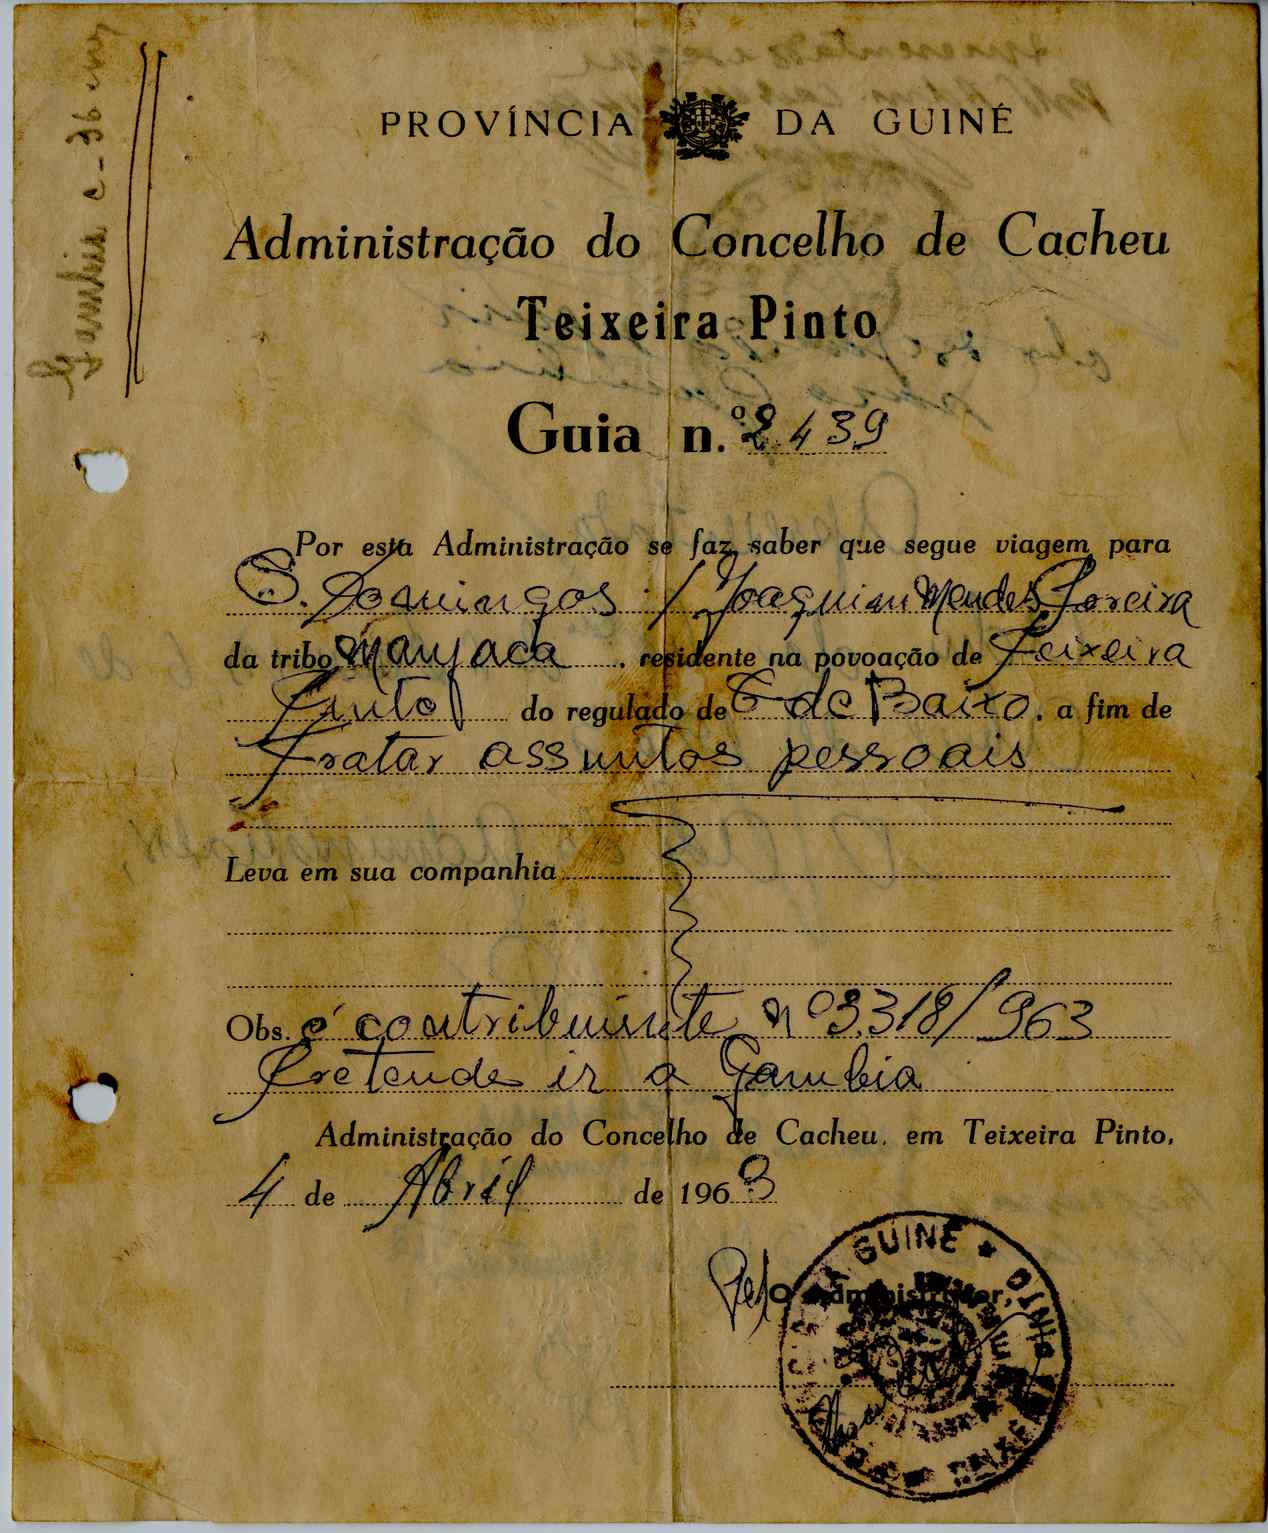 PROVÍNCIA DA GUINÉ
Administração do Concelho de Cacheu
Teixeira Pinto
Guia n.º 2.439
Por esta Administração se faz saber que segue viagem para
S. Domingos / Joaquim Mendes Pereira
da tribo Manjaca, residente na povoação de Teixeira
Pinto do regulado de C de Baixo, a fim de
Tratar assuntos pessoais
Leva em sua companhia
Obs. é contribuinte nº 3.318/963
Pretende ir a Gambia
Administração do Concelho de Cacheu, em Teixeira Pinto,
4 de Abril de 1963
Pelo O Administrador,
GUINÉ